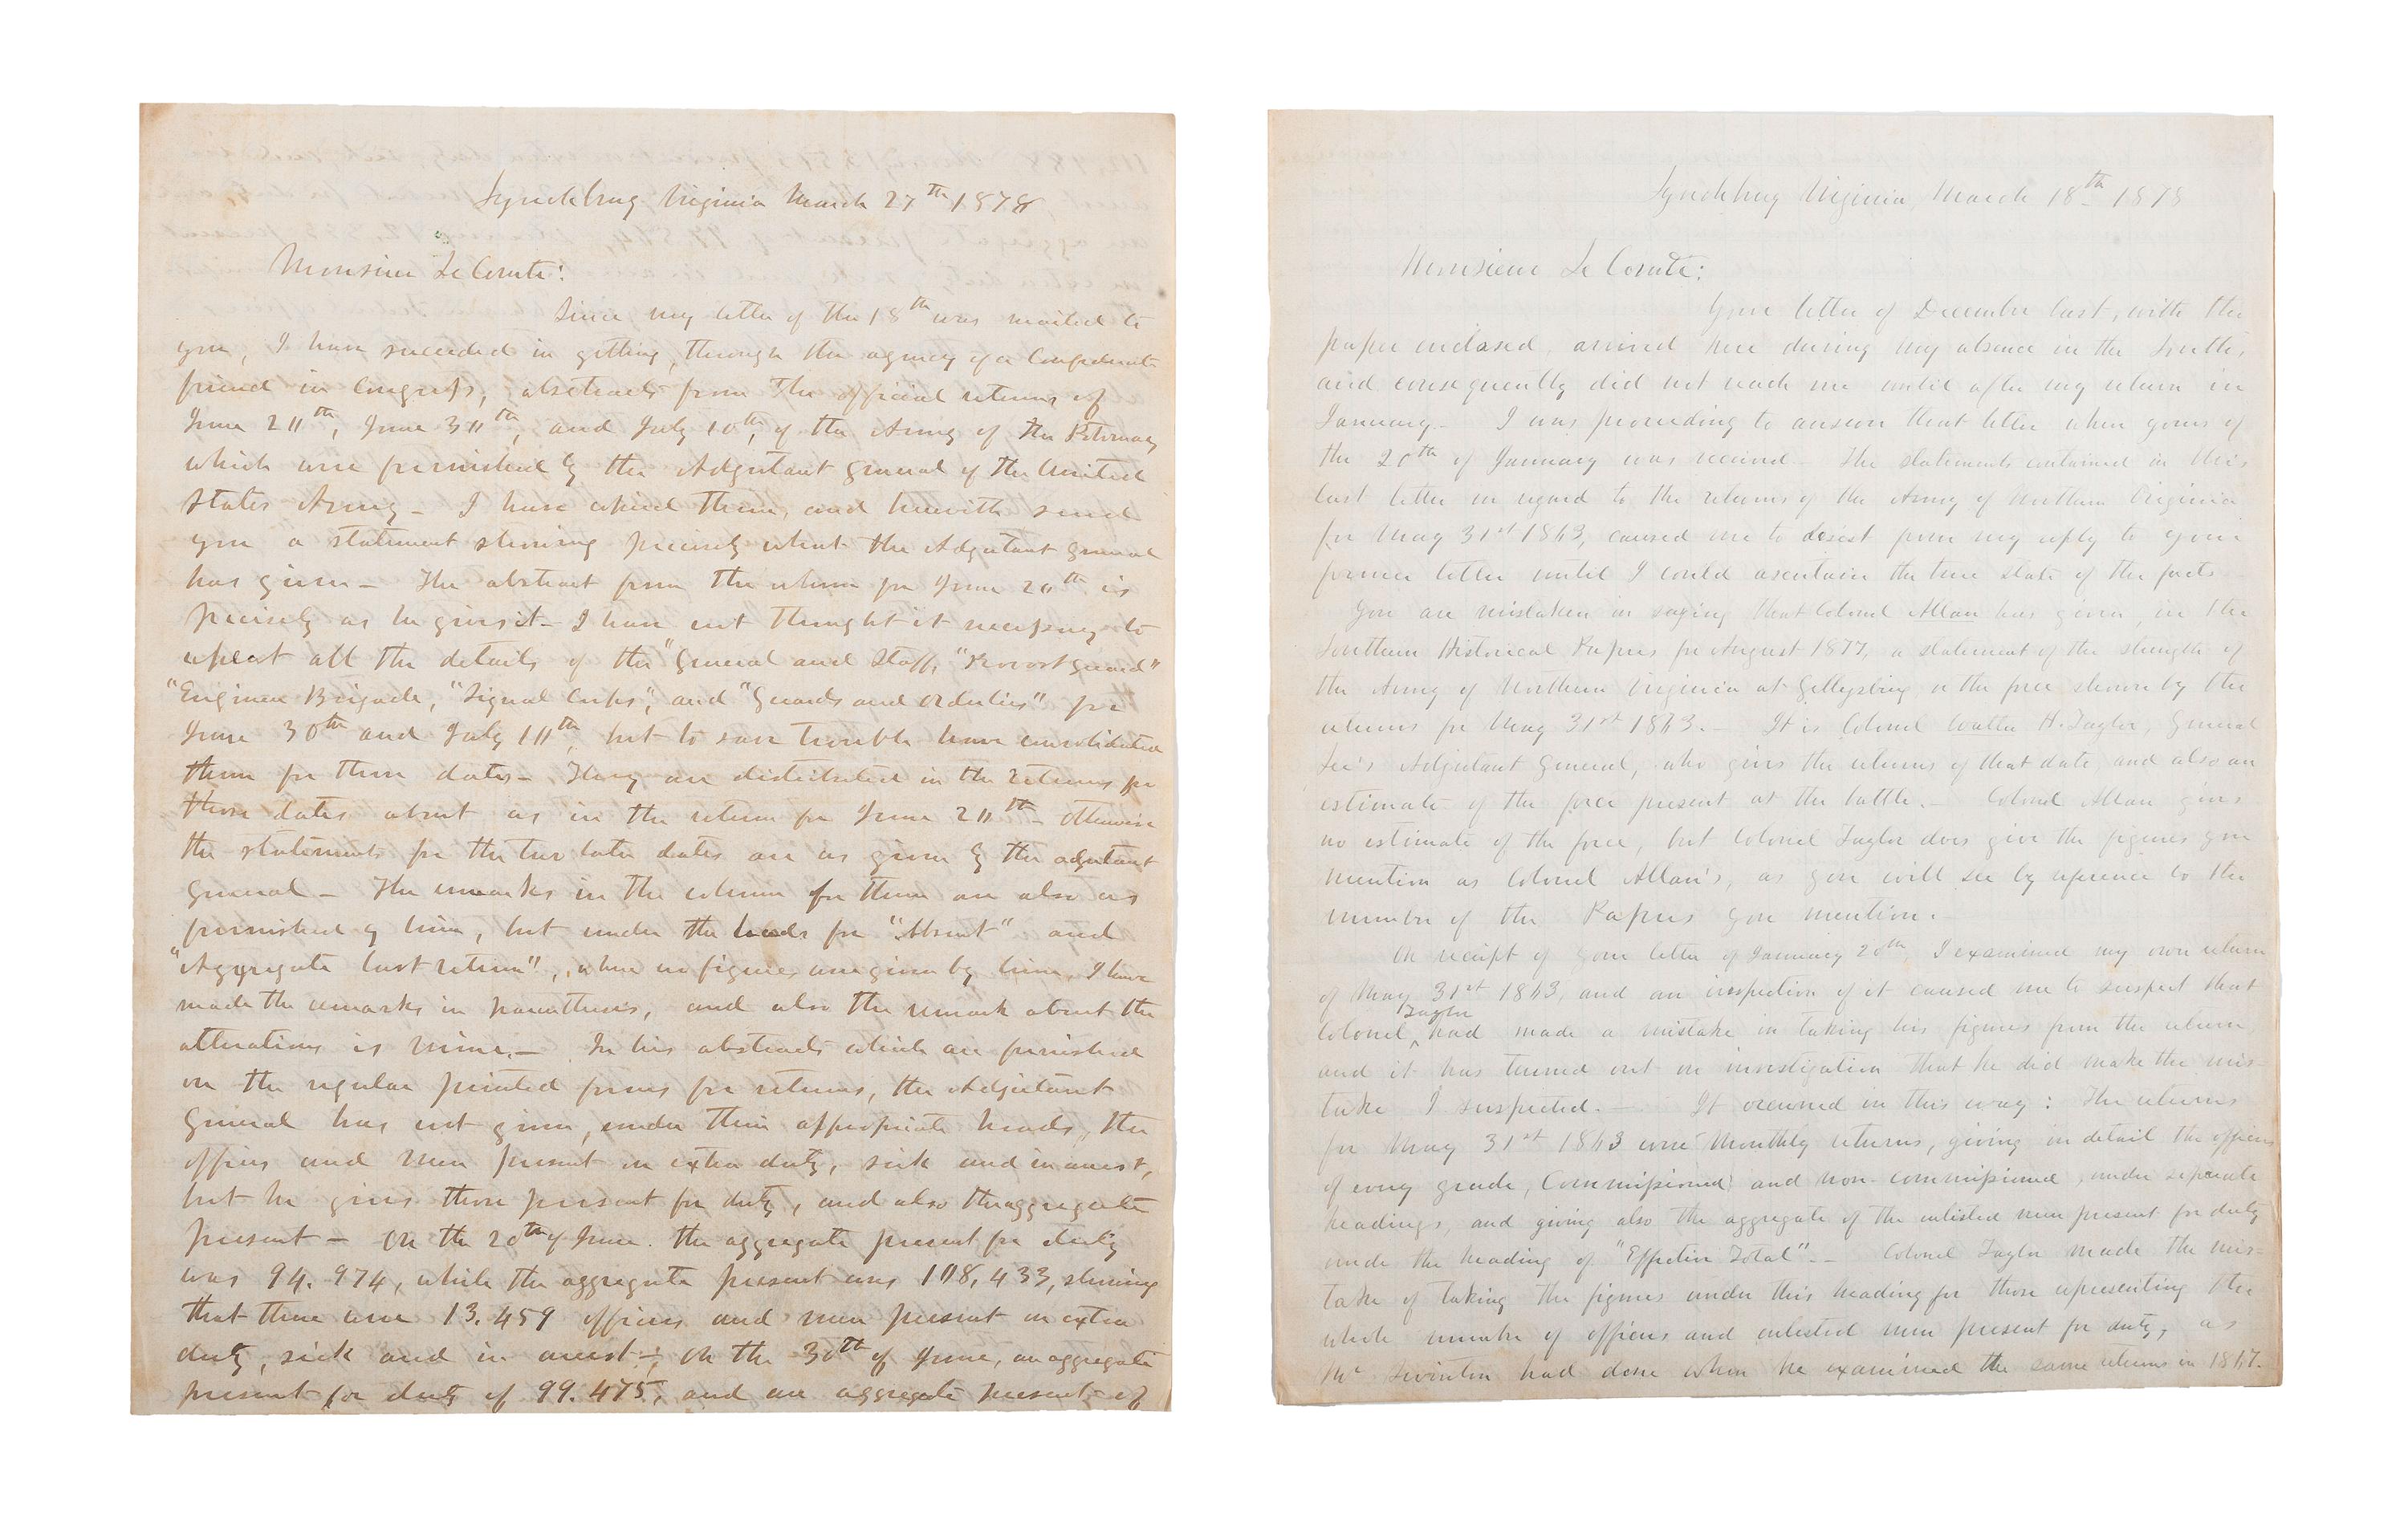 Lynchburg Virginia March 27th 1878
Monsieur Le Comte:
Since my letter of the 18th was mailed to
you, I have succeeded in getting, through the agency of a Confederate
friend in Congress, abstracts from the official returns of
June 20th, June 30th, and July 10th, of the Army of the Potomac
which are furnished by the Adjutant General of the United
States Army – I have copied them, and herewith send
you a statement showing precisely what the Adjutant General
has given – The abstract from the return for June 20th is
precisely as he gives it – I have not thought it necessary to
repeat all the details of the "General and Staff, "Provost Guard"
"Engineer Brigade," "Signal Corps," and "Guards and Orderlies" for
June 30th and July 10th, but to save trouble have consolidated
them for those dates – They are distributed in the returns for
those dates about as in the return for June 20th – otherwise
the statements for the two later dates are as given by the adjutant
General – The remarks in the column for them are also as
furnished by him, but under the heads for "Absent" and
"Aggregate last return", where no figures are given by him, I have
made the remarks in parenthesis, and also the remark about the
alterations is mine. – In his abstracts which are furnished
on the regular printed forms for returns, the Adjutant
General has not given, under their appropriate heads, the
officers and men present on extra duty, sick and in arrest,
but he gives those present for duty, and also the aggregate
present – On the 20th of June the aggregate present for duty
was 94.974, while the aggregate present was 108,433, showing
that there were 13.459 officers and men present on extra
duty, sick and in arrest –; On the 30th of June, an aggregate
present for duty of 99.475, and an aggregate present of
Lynchburg Virginia, March 18th 1878
Monsieur Le Comte:
Your letter of December last, with the
paper enclosed, arrived here during my absence in the South,
and consequently did not reach me until after my return in
January – I was proceeding to answer that letter when yours of
the 20th of January was received – The statements contained in this
last letter in regard to the returns of the Army of Northern Virginia
for May 31st 1863, caused me to desist from my reply to your
former letter until I could ascertain the true state of the facts –
You are mistaken in saying that Colonel Allan has given, in the
Southern Historical Papers for August 1877, a statement of the strength of
the Army of Northern Virginia at Gettysburg or the force shown by the
returns for May 31st 1863. – It is Colonel Walter H. Taylor, General
Lee's Adjutant General, who gives the returns of that date and also an
estimate of the force present at the battle. – Colonel Allan gives
no estimate of the force, but Colonel Taylor does give the figures you
mention as Colonel Allan's, as you will see by reference to the
number of the Papers you mention.
On receipt of your letter of January 20th, I examined my own return
of May 31st 1863, and an inspection of it caused me to suspect that
Colonel Taylor had made a mistake in taking his figures from the return
and it has turned out on investigation that he did make the mis-
take I suspected. – It occurred in this way: The returns
for May 31st 1863 were Monthly returns, giving in detail the officers
of every grade, Commissioned and non-commissioned, under separate
headings, and giving also the aggregate of the enlisted men present for duty
under the heading of "Effective Total" – Colonel Taylor made the mis-
take of taking the figures under this heading for those representing the
whole number of officers and enlisted men present for duty, as
Mr Swinton had done when he examined the same returns in 1867.